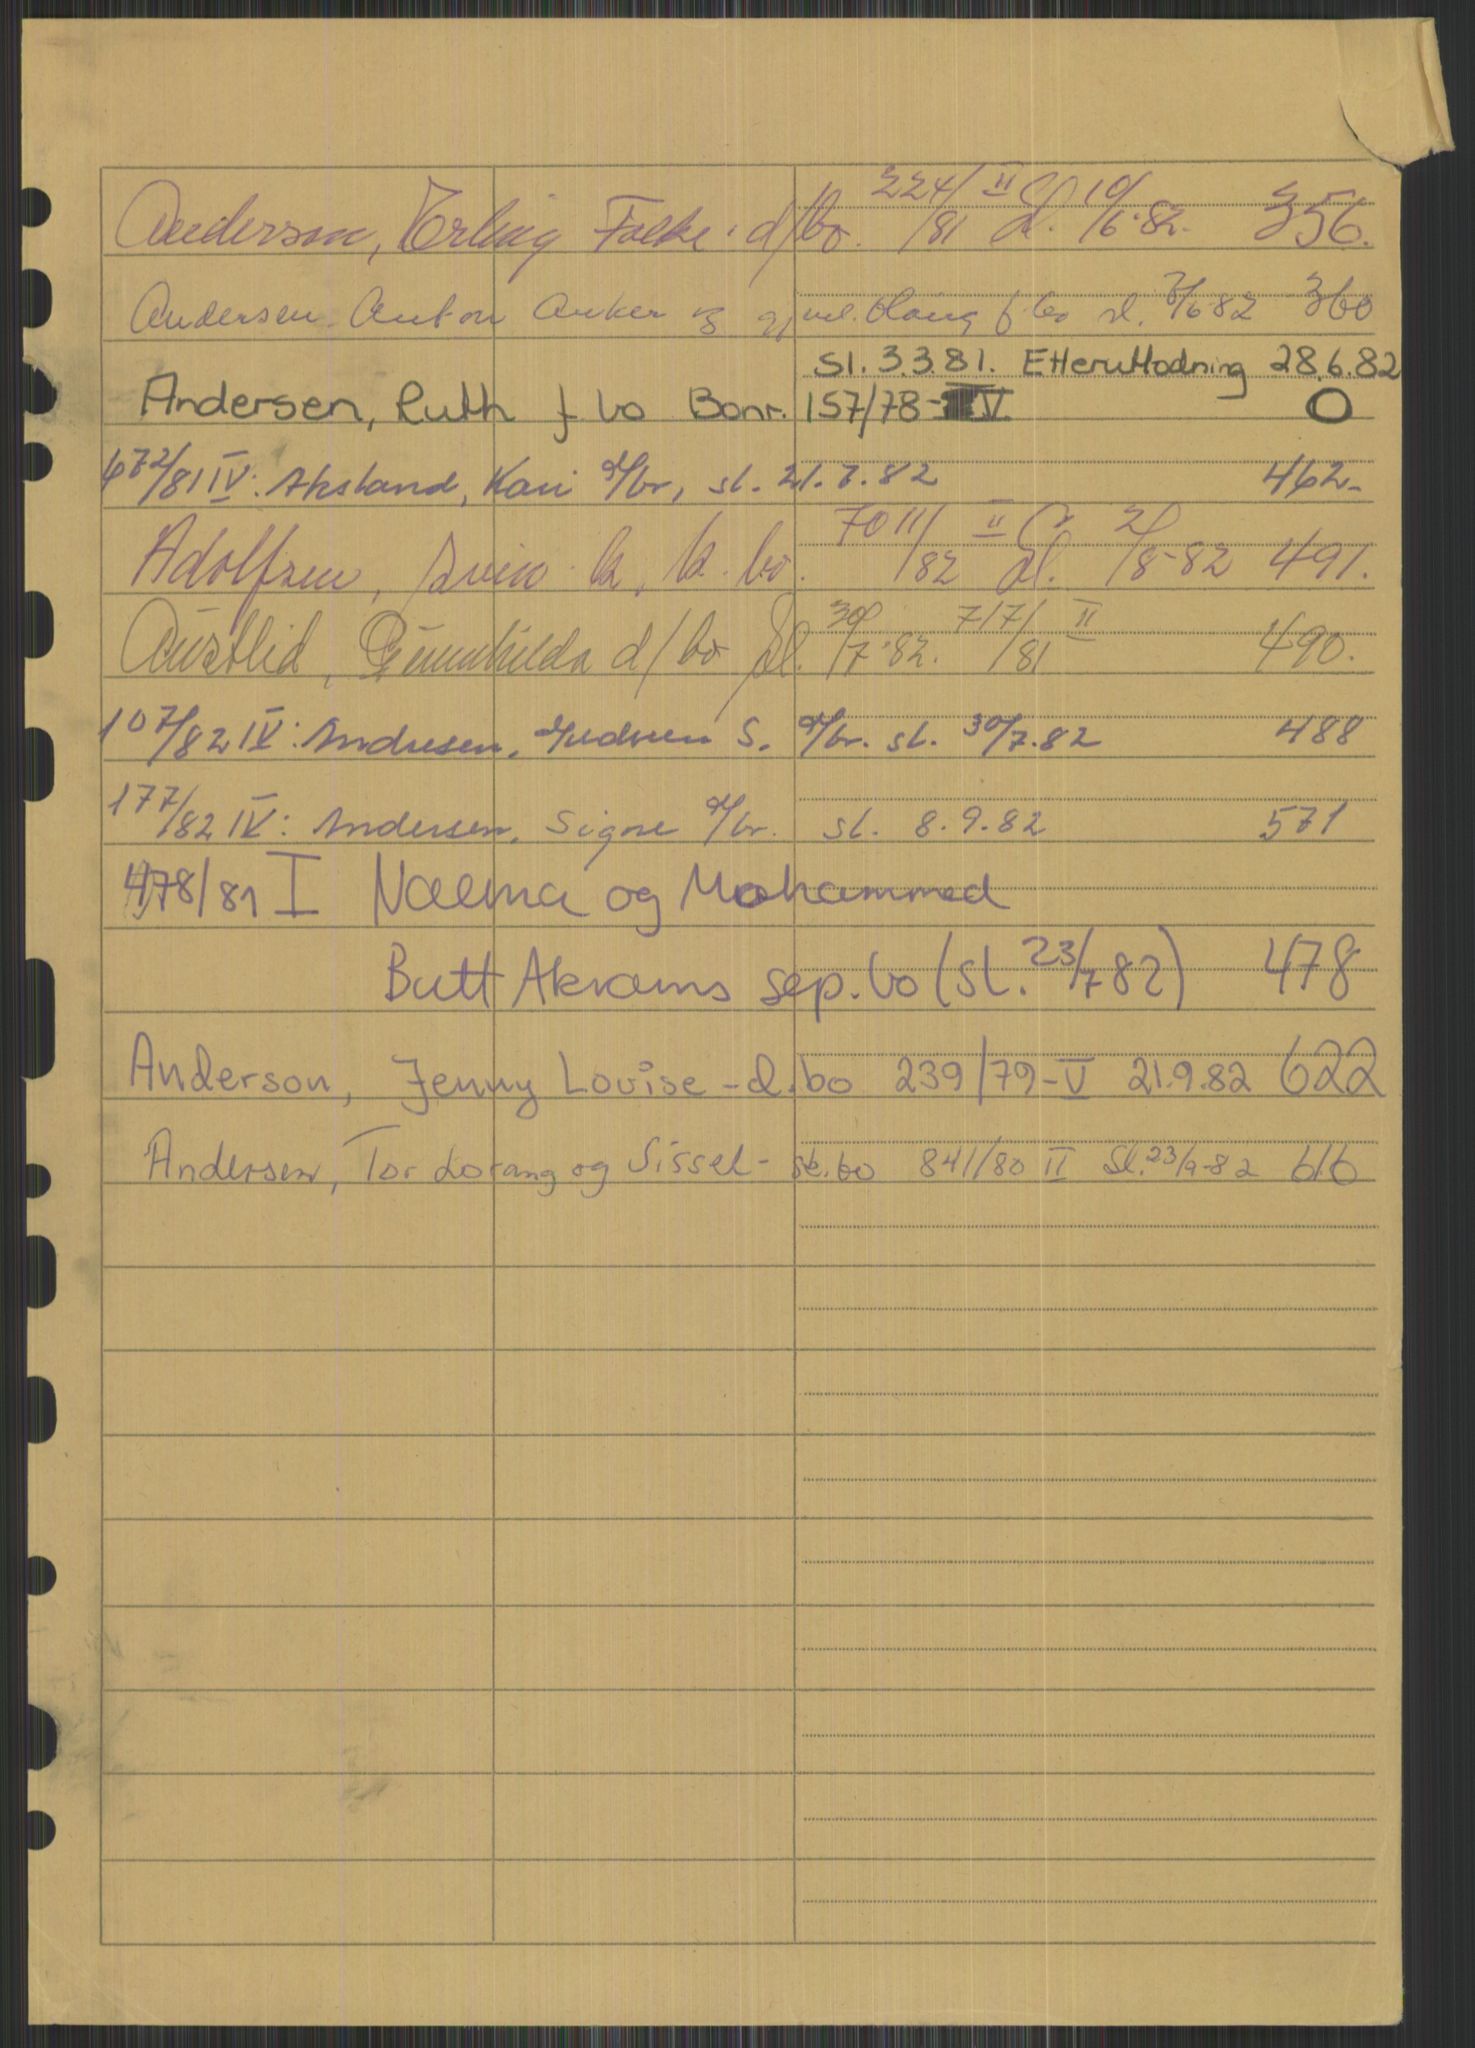 Anderson, Erling Folke. d/bo. 224/81 II sl. 10/6-82. 356.
Andersen Anton Anker og f bo sl. 7/6-82 360
sl. 3.3.81. Etterutlodning 28.6.82
Andersen, Ruth f. bo Bonr. 157/78-V O
672/81 IV: Aksland, Kari d/br, sl. 21.7.82 462-
Adolfsen, Svein k. bo. 7011/82 II sl. 2/8-82 491.
Austlid, Gunnhilda d/bo sl. 30/7-82. 717/81 II 490.
107/82 IV: Andresen, Gudrun S. d/br. sl. 30/7.82 488
177/82 IV: Andersen, Signe d/br. sl. 8.9.82 571
478/81 I Naema og Mohammed
Butt Akrams sep.bo (sl. 23/7 82) 478
Anderson, Jenny Lovise - d.bo 239/79-V 21.9.82 622
Andersen, Tor Lorang og Sissel - sk.bo 841/80 II Sl. 23/9-82 616